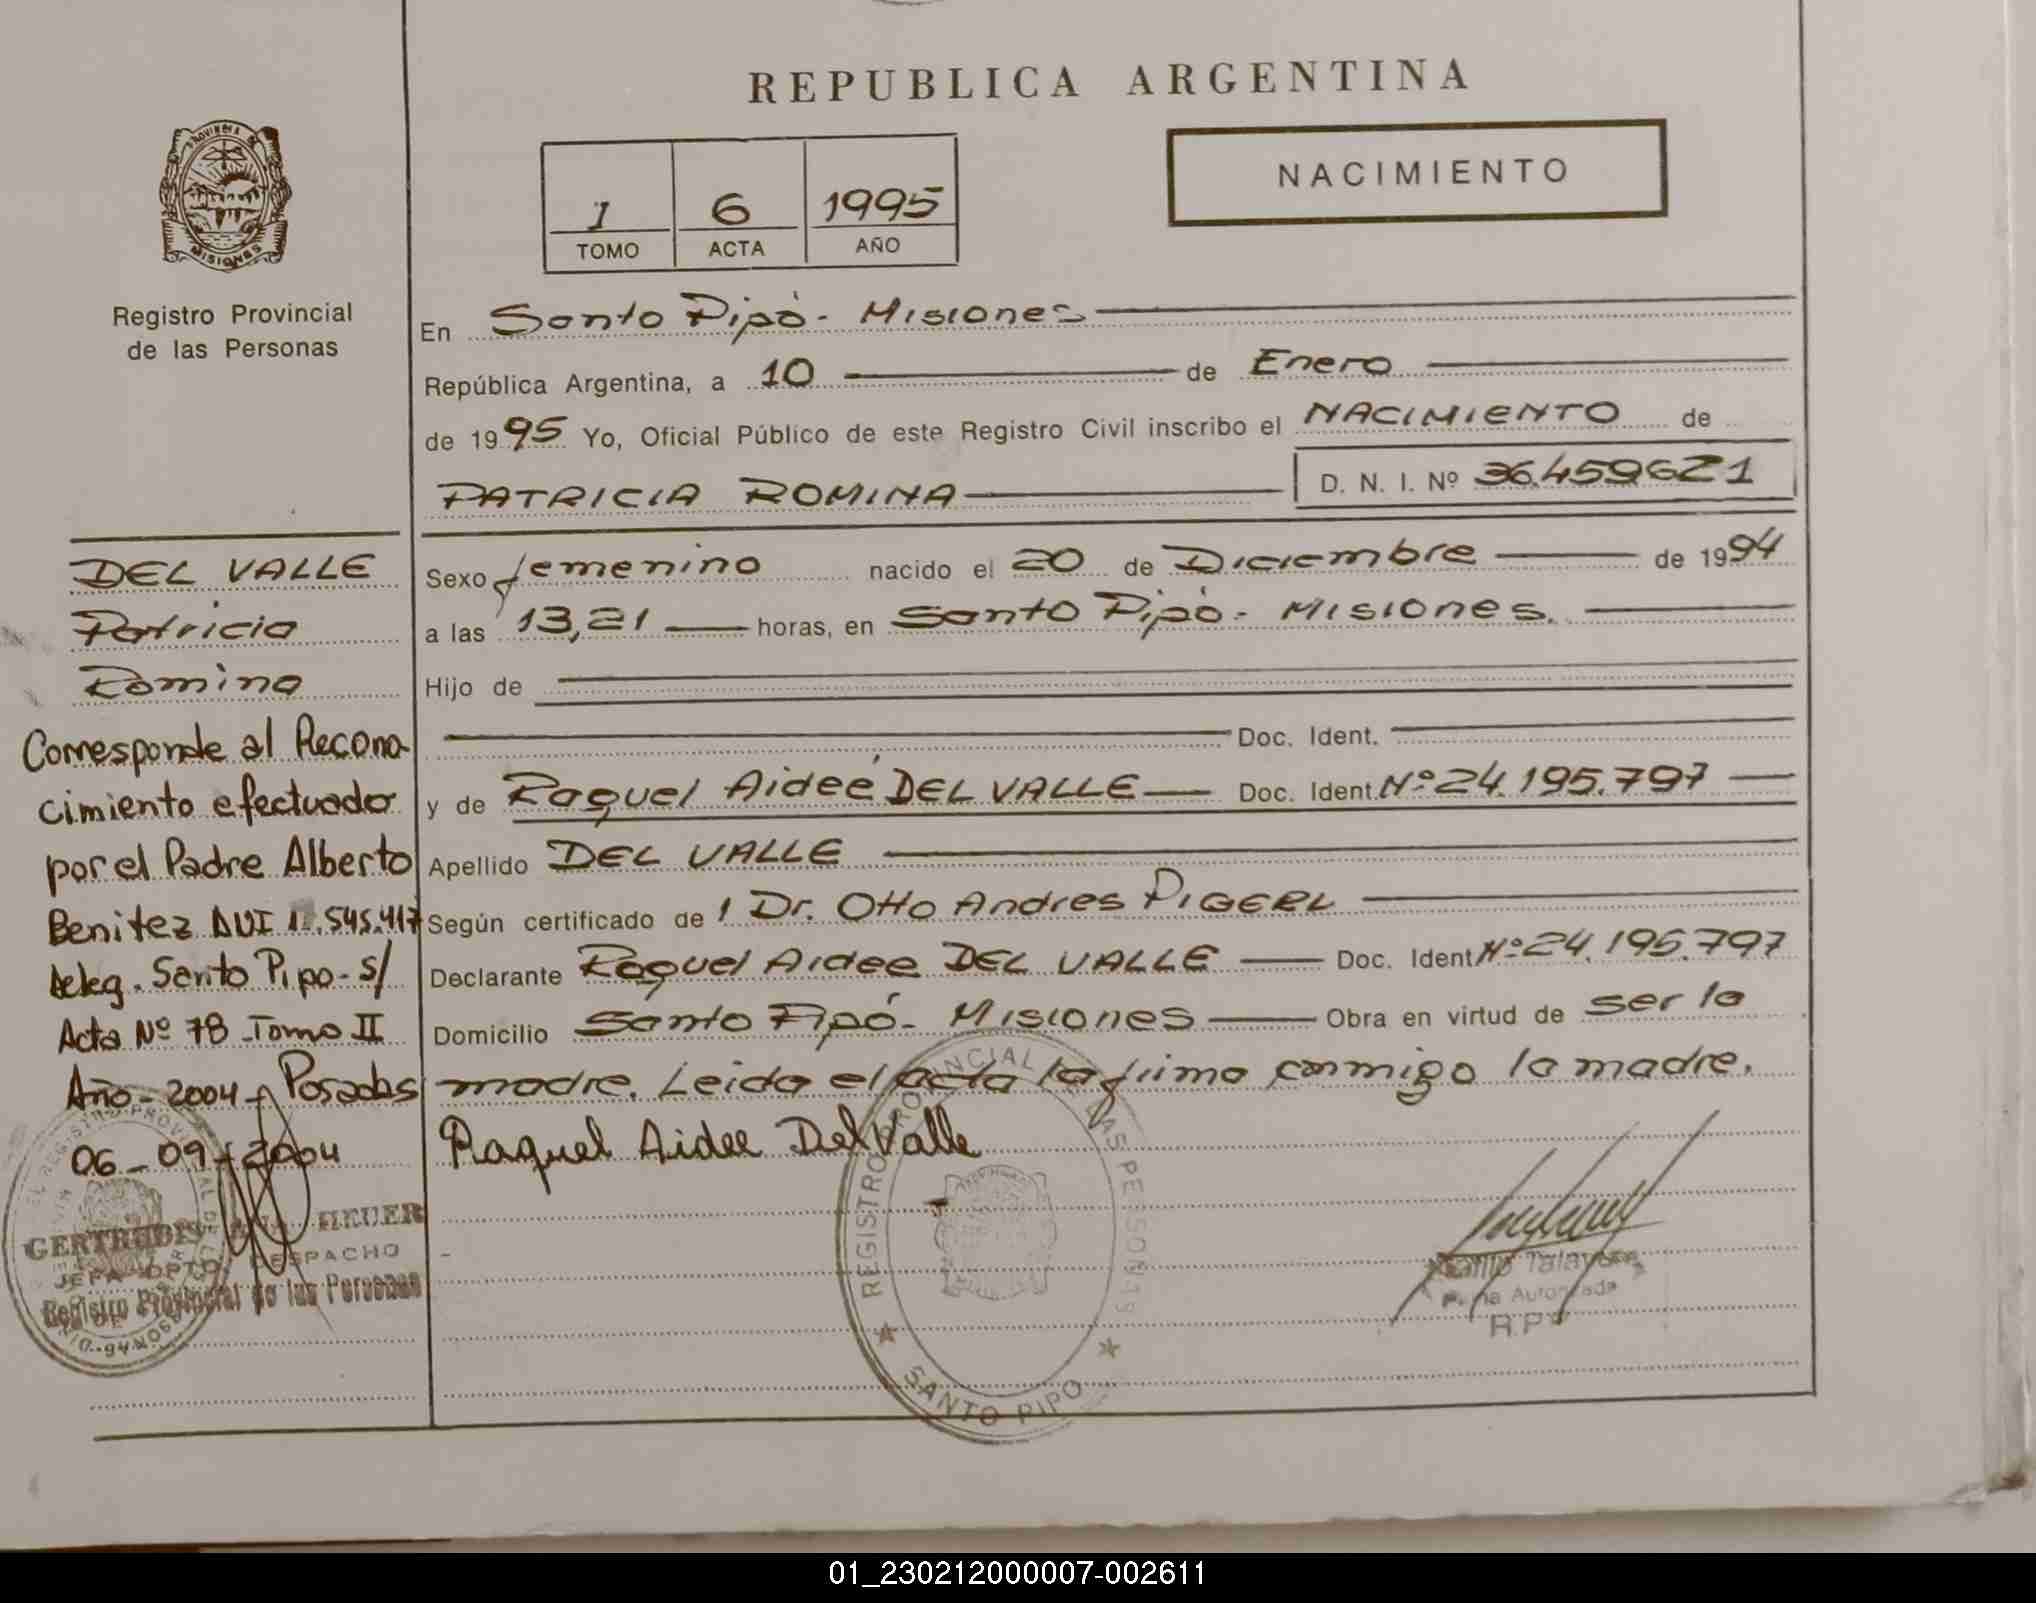 REPUBLICA ARGENTINA
NACIMIENTO
1 6 1995
TOMO ACTA AÑO
PROVINCIA DE
MISIONES
Registro Provincial
de las Personas
En Santo Pipó - Misiones
República Argentina, a 10 de Enero
de 1995 Yo, Oficial Público de este Registro Civil inscribo el NACIMIENTO de
PATRICIA ROMINA D. N. I. Nº 36.459621
Sexo femenino nacido el 20 de Diciembre de 1994
a las 13,21 horas, en Santo Pipó - Misiones.
Hijo de
Doc. Ident.
y de Raquel Aideé DEL VALLE Doc. Ident. Nº 24.195.797
Apellido DEL VALLE
Según certificado de 1 Dr. Otto Andres PIGERL
Declarante Raquel Aidee DEL VALLE Doc. Ident Nº 24.195.797
Domicilio Santo Pipó - Misiones Obra en virtud de ser la
madre. Leida el acta la firma conmigo la madre.
Raquel Aidee Del Valle
DEL VALLE
Patricia
Romina
Corresponde al Recono-
cimiento efectuado
por el Padre Alberto
Benitez DNI .545.417
Deleg. Santo Pipo - s/
Acta Nº 78 - Tomo II
Año - 2004 - Posadas
06 - 09 - 2004
GERTRUDIS HEUER
JEFA DPTO. DESPACHO
Registro Provincial de las Personas
REGISTRO PROVINCIAL DE LAS PERSONAS
SANTO PIPO
Talavera
Firma Autorizada
R.P.P
01_230212000007-002611